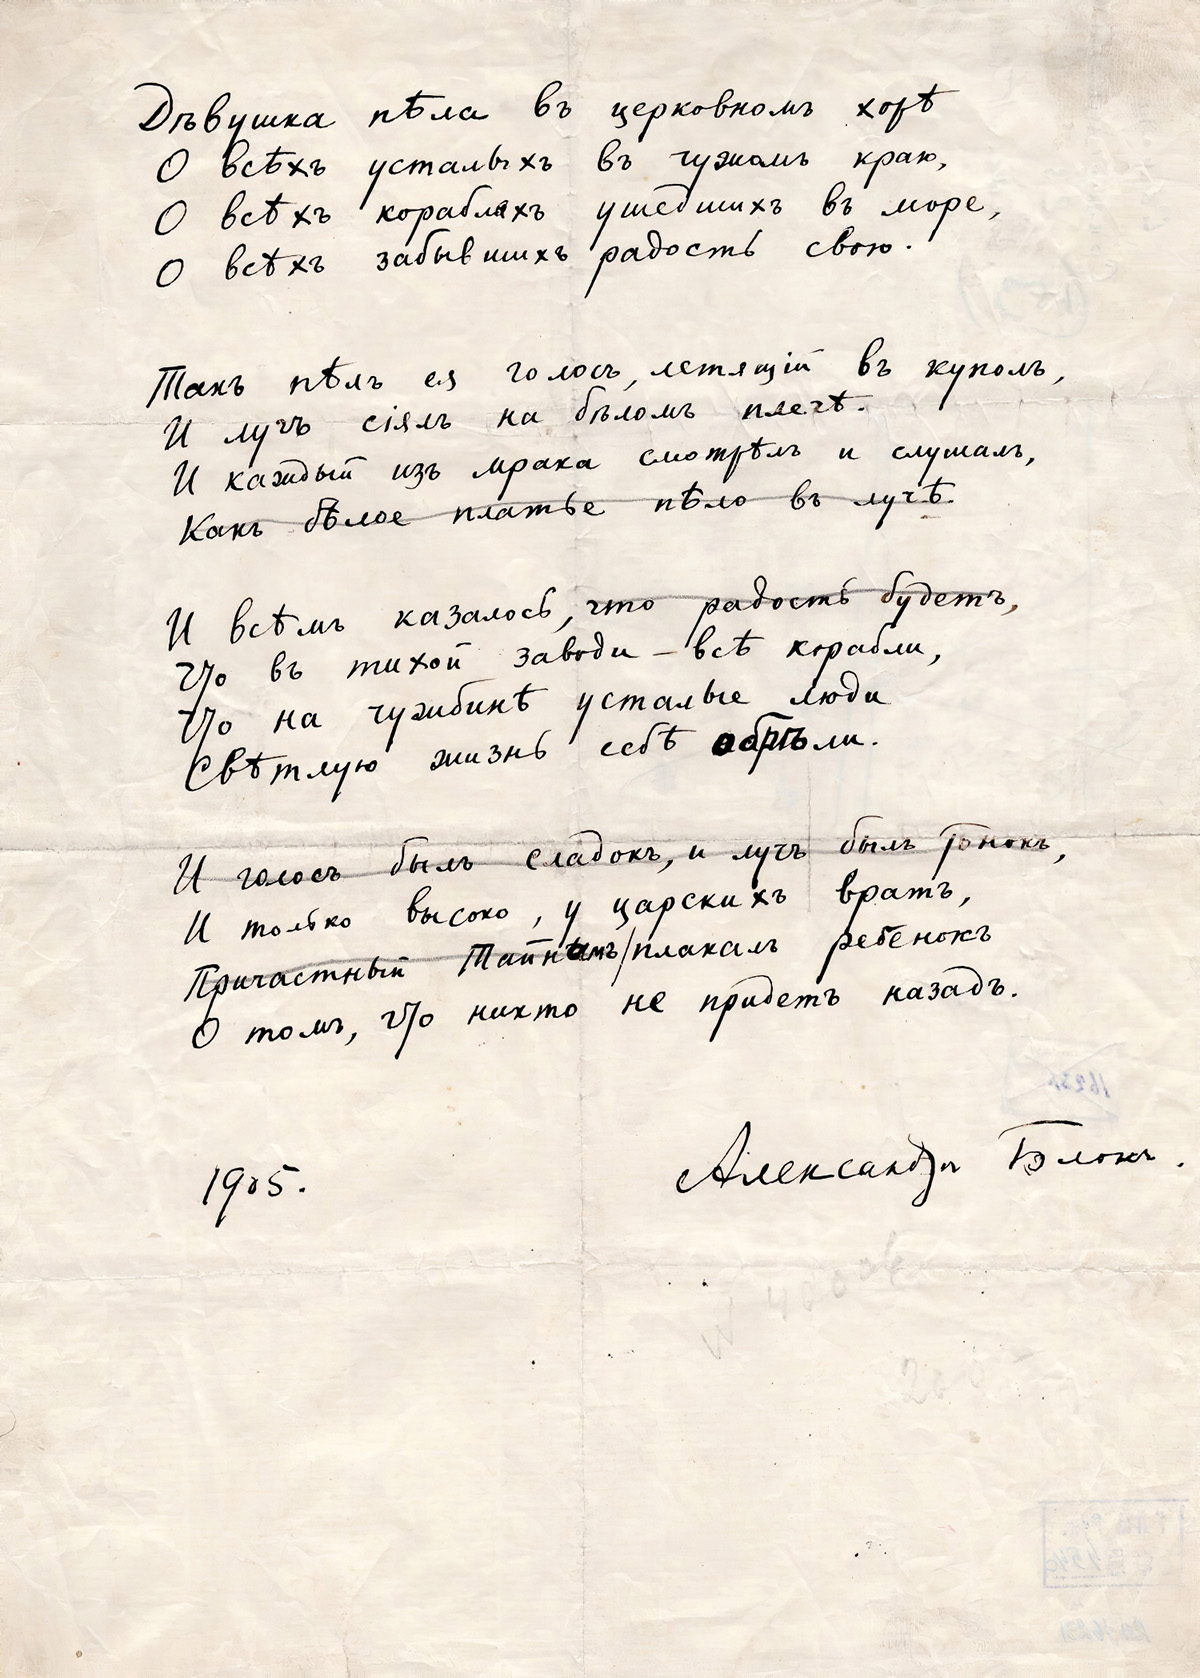 Дѣвушка пѣла въ церковномъ хорѣ
О всѣхъ усталыхъ въ чужомъ краю,
О всѣхъ корабляхъ ушедшихъ въ море,
О всѣхъ забывшихъ радость свою.
Такъ пѣлъ ея голосъ, летящій въ куполъ,
И лучъ сіялъ на бѣломъ плечѣ.
И каждый изъ мрака смотрѣлъ и слушалъ,
Какъ бѣлое платье пѣло въ лучѣ.
И всѣмъ казалось, что радость будетъ,
Что въ тихой заводи – всѣ корабли,
Что на чужбинѣ усталые люди
Свѣтлую жизнь себѣ обрѣли.
И голосъ былъ сладокъ, и лучъ былъ тонокъ,
И только высоко, у царскихъ вратъ,
Причастный Тайнамъ/плакалъ ребенокъ
О томъ, что никто не придетъ назадъ.
1905.
Александръ Блокъ.